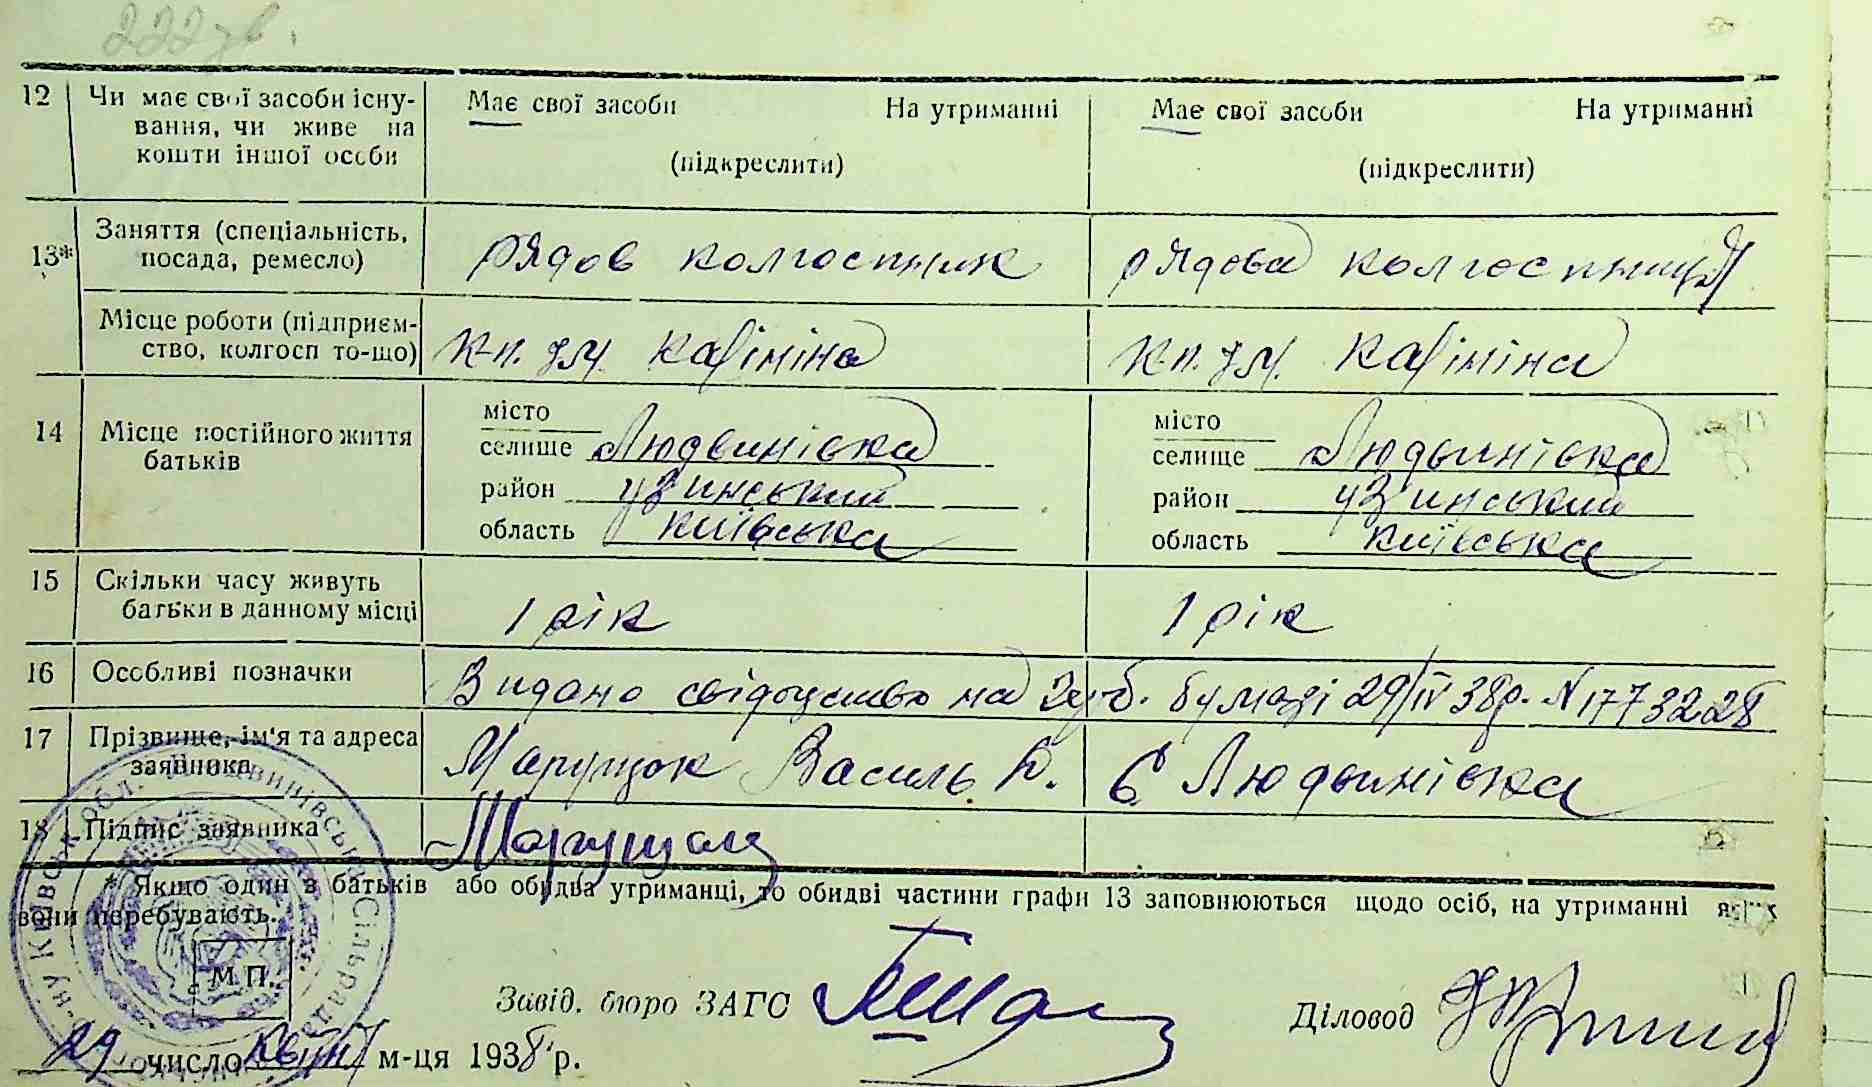 222 зв.
12 Чи має свої засоби існу- Має свої засоби На утриманні Має свої засоби На утриманні
вання, чи живе на
кошти іншої особи (підкреслити) (підкреслити)
13* Заняття (спеціальність, посада, ремесло) рядов колгоспник рядова колгоспниця
Місце роботи (підприєм-
ство, колгосп то-що) к-п. ім. Калініна к-п. ім. Калініна
14 Місце постійного життя батьків
місто місто
селище Людвинівка селище Людвинівка
район узинський район узинський
область київська область київська
15 Скільки часу живуть
батьки в данному місці 1 рік 1 рік
16 Особливі позначки Видано свідоцтво на бумазі 29/IV 38р. N 1773228
17 Прізвище, ім'я та адреса
заявника Марущок Василь С. Людвинівка
18 Підпис заявника
* Якщо один з батьків або обидва утриманці, то обидві частини графи 13 заповнюються щодо осіб, на утриманні яких
вони перебувають.
М.П.
Завід. бюро ЗАГС Діловод
29 число квітня м-ця 1938 р.